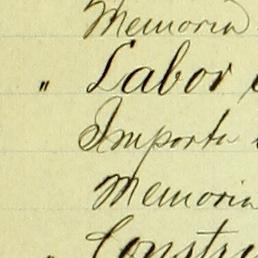 Memoria
" Labor
Importa
Memoria
" Constru